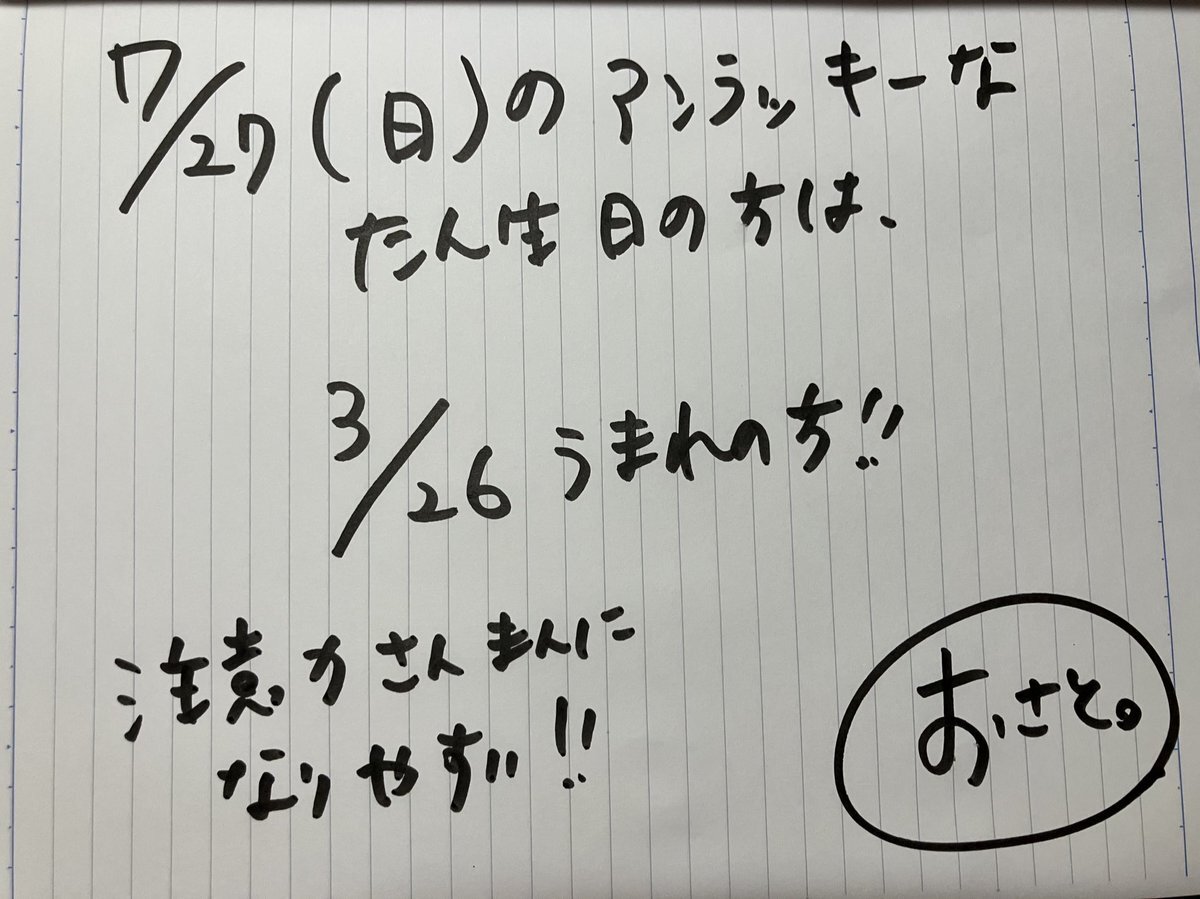 7/27(日)のアンラッキーな
たん生日の方は、
3/26うまれの方!!
注意力さんまんに
なりやすい!!
おさと。